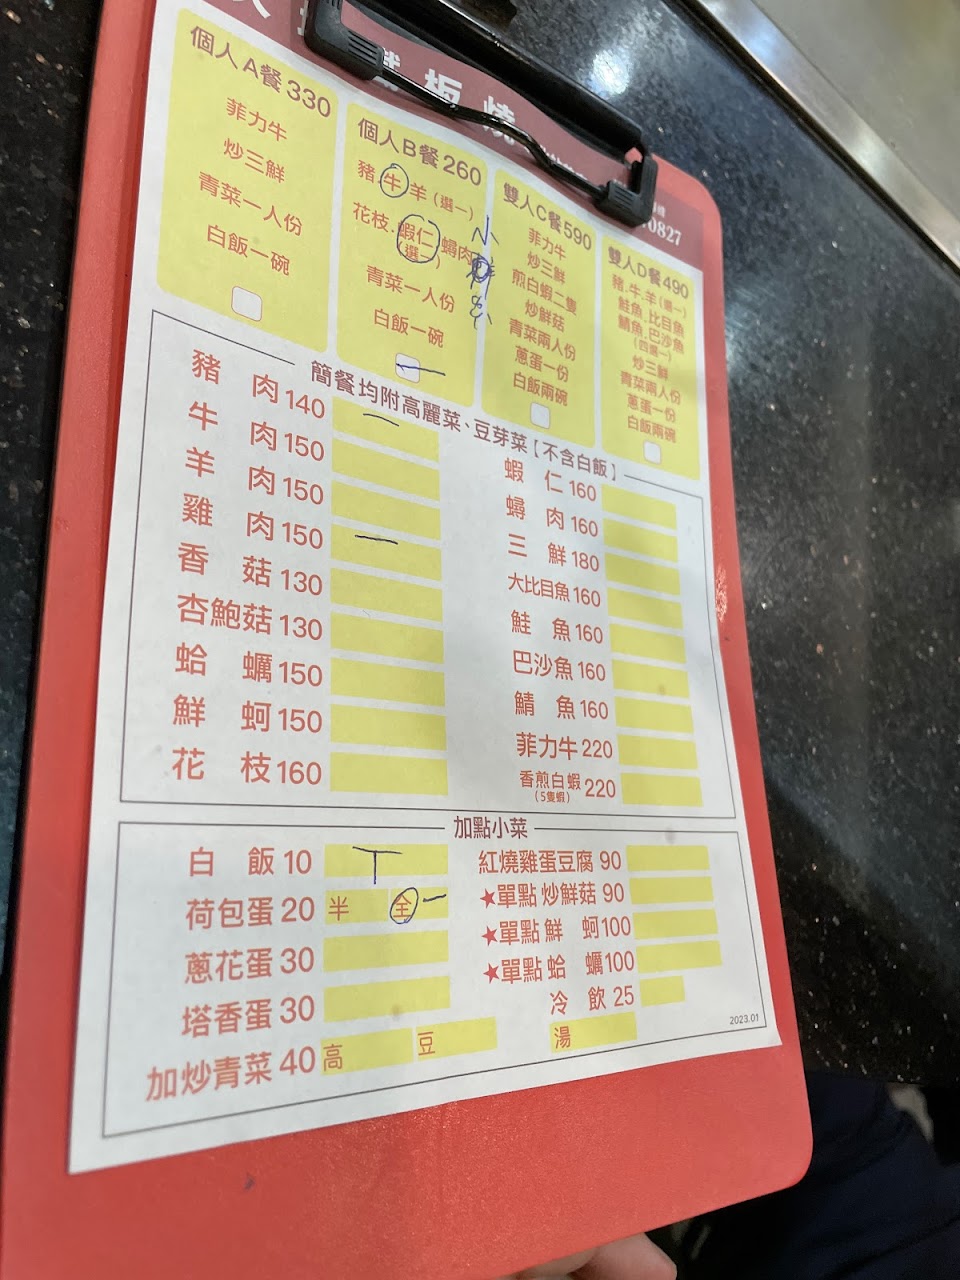 鐵板燒
0827
個人A餐330
菲力牛
炒三鮮
青菜一人份
白飯一碗
個人B餐260
豬.牛.羊(選一)
花枝.蝦仁.蟳肉
(選二)
青菜一人份
白飯一碗
小
雙人C餐590
菲力牛
炒三鮮
煎白蝦二隻
炒鮮菇
青菜兩人份
蔥蛋一份
白飯兩碗
雙人D餐490
豬.牛.羊(選一)
鮭魚.比目魚
鯖魚.巴沙魚
(四選一)
炒三鮮
青菜兩人份
蔥蛋一份
白飯兩碗
簡餐均附高麗菜、豆芽菜【不含白飯】
豬 肉 140 一
牛 肉 150
羊 肉 150
雞 肉 150 一
香 菇 130
杏鮑菇 130
蛤 蠣 150
鮮 蚵 150
花 枝 160
蝦 仁 160
蟳 肉 160
三 鮮 180
大比目魚 160
鮭 魚 160
巴沙魚 160
鯖 魚 160
菲力牛 220
香煎白蝦 220
(5隻蝦)
加點小菜
白 飯 10 丅
荷包蛋 20 半 全 一
蔥花蛋 30
塔香蛋 30
加炒青菜 40 高 豆
紅燒雞蛋豆腐 90
★單點 炒鮮菇 90
★單點 鮮 蚵 100
★單點 蛤 蠣 100
冷 飲 25
湯
2023.01